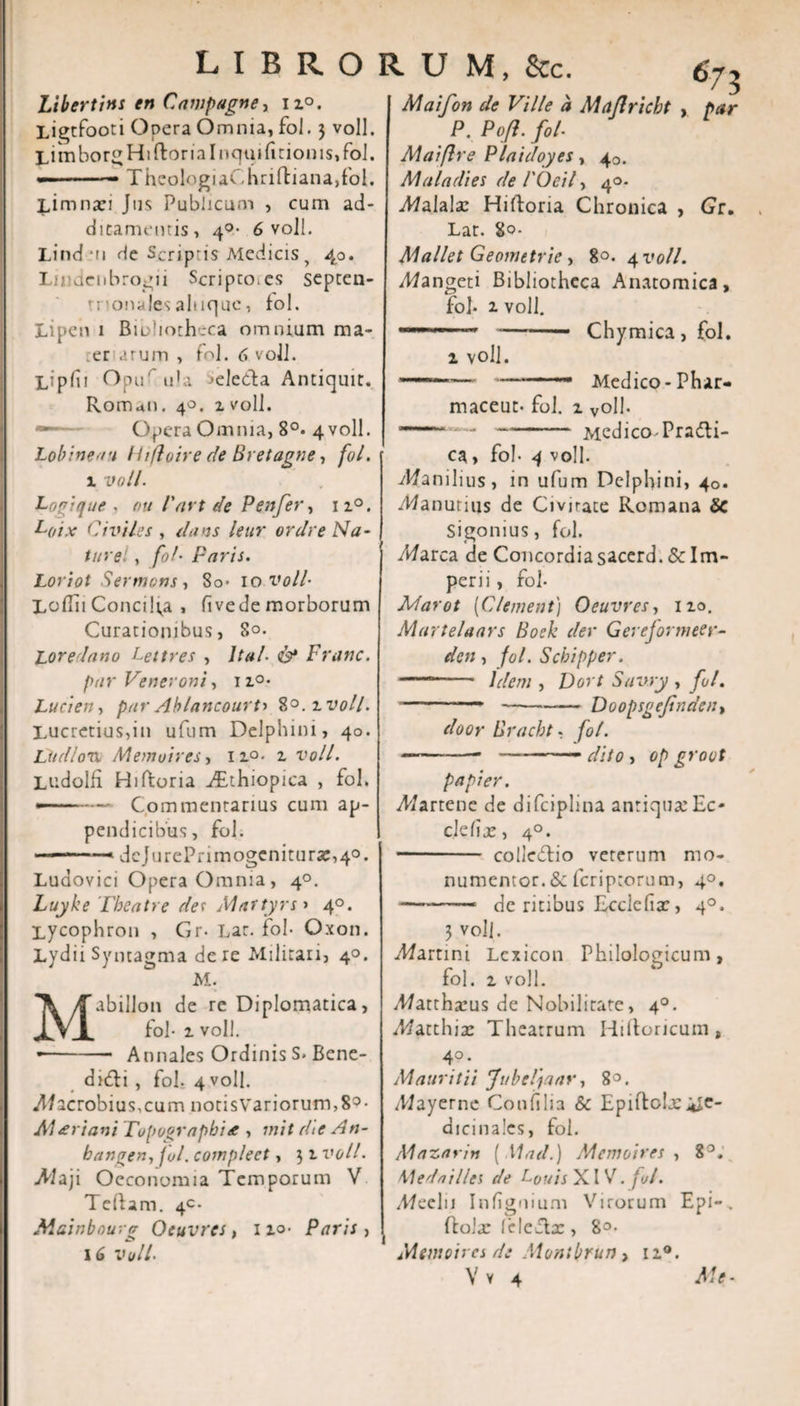 LIBRORUM, &c. 673
Libertins en Campagne, 12°.
Ligtfooti Opera Omnia, fol. 3 voll.
Limborg Historia Inquisitionis, fol.
——— Theologia Christiana, fol.
Limnæi Jus Publicum , cum ad-
ditamentis, 4°. 6 voll.
Linden de Scriptis Medicis, 4o.
Lindenbrogii Scriptores Septen-
trionales aliique, fol.
Lipenii Bibliotheca omnium ma-
teriarum , fol. 6 voll.
Lipsii Opuscula Selecta Antiquit.
Roman. 4o. 2 voll.
——— Opera Omnia, 8°. 4 voll.
Lobineau Histoire de Bretagne, fol.
2 voll.
Logique, ou l'art de Penser, 12°.
Loix Civiles , dans leur ordre Na-
turel , fol. Paris.
Loriot Sermons, 8o. 10 voll.
Lossii Concilia , sive de morborum
Curationibus, 8o.
Loredano Lettres , Ital. & Franc.
par Veneroni, 12°.
Lucien, par Ablancourt, 8°. 2 voll.
Lucretius, in usum Delphini, 4o.
Ludlow Memoires, 12°. 2 voll.
Ludolfi Historia Æthiopica , fol.
——— Commentarius cum ap-
pendicibus, fol.
——— de Jure Primogenituræ, 4°.
Ludovici Opera Omnia, 4°.
Luyke Theatre des Martyrs, 4°.
Lycophron , Gr. Lat. fol. Oxon.
Lydii Syntagma de re Militari, 4°.
M.
Mabillon de re Diplomatica,
fol. 2 voll.
——— Annales Ordinis S. Bene-
dicti , fol. 4 voll.
Macrobius, cum notis Variorum, 8°.
Mæriani Topographiæ , mit die An-
hangen, fol. compleet, 32 voll.
Maji Oeconomia Temporum V
Testam. 4°.
Mainbourg Oeuvres, 12°. Paris,
16 voll.
Maison de Ville à Mastricht , par
P. Post. fol.
Maistre Plaidoyes, 4o.
Maladies de l'Oeil, 4°.
Malalæ Historia Chronica , Gr.
Lat. 8°.
Mallet Geometrie, 8°. 4 voll.
Mangeti Bibliotheca Anatomica,
fol. 2 voll.
——— ——— Chymica, fol.
2 voll.
——— ——— Medico-Phar-
maceut. fol. 2 voll.
——— ——— Medico-Practi-
ca, fol. 4 voll.
Manilius, in usum Delphini, 4o.
Manutius de Civitate Romana &
Sigonius, fol.
Marca de Concordia sacerd. & Im-
perii, fol.
Marot (Clement) Oeuvres, 12o.
Martelaars Boek der Gereformeer-
den, fol. Schipper.
——— Idem, Dort Savry, fol.
——— ——— Doopsgesinden,
door Bracht, fol.
——— ——— dito, op groot
papier.
Martene de disciplina antiquæ Ec-
clesiæ, 4°.
——— collectio veterum mo-
numentor. & scriptorum, 4°.
——— de ritibus Ecclesiæ, 4°.
3 voll.
Martini Lexicon Philologicum,
fol. 2 voll.
Matthæus de Nobilitate, 4°.
Matthiæ Theatrum Historicum,
4o.
Mauritii Jubeljaar, 8°.
Mayerne Consilia & Epistolæ Me-
dicinales, fol.
Mazarin (Mad.) Memoires , 8°.
Medailles de Louis XIV. fol.
Meelii Insignium Virorum Epi-
stolæ selectæ, 8°.
Memoires de Montbrun, 12°.
Vv 4 Me-